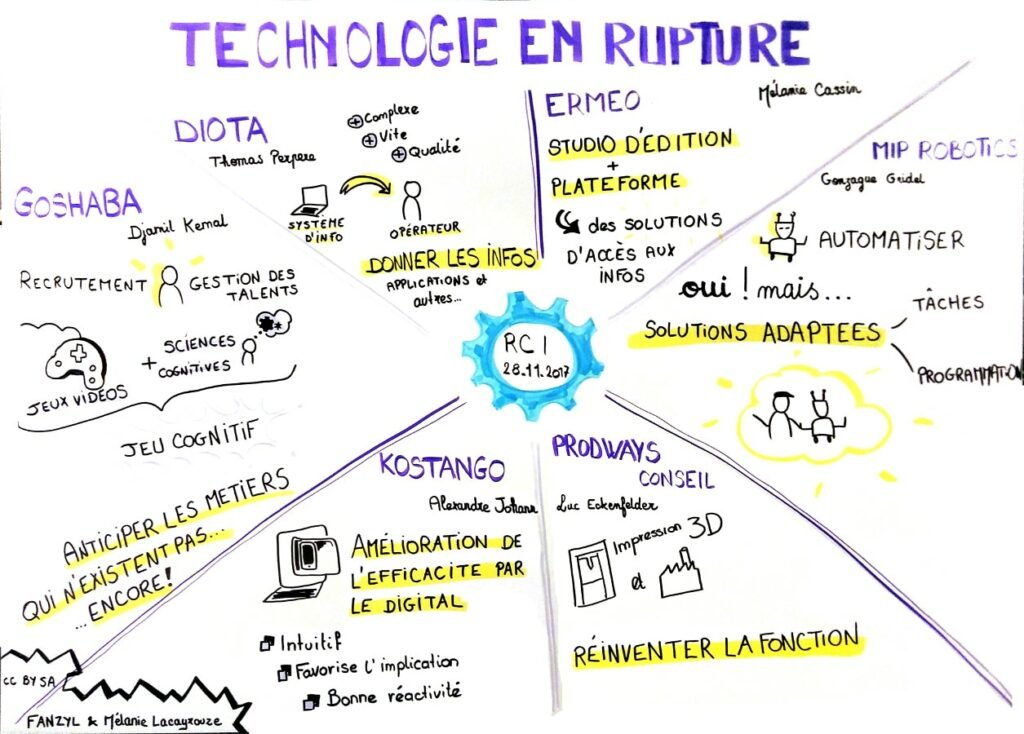 TECHNOLOGIE EN RUPTURE
GOSHABA
Djamil Kemal
RECRUTEMENT
GESTION DES
TALENTS
JEUX VIDEOS
+
SCIENCES
COGNITIVES
JEU COGNITIF
ANTICIPER LES METIERS
QUI N'EXISTENT PAS...
...ENCORE!
DIOTA
Thomas
+ Complexe
+ Vite
+ Qualité
SYSTÈME
D'INFO
OPÉRATEUR
DONNER LES INFOS
APPLICATIONS et
autres...
ERMEO
Mélanie Cassin
STUDIO D'ÉDITION
+
PLATEFORME
des SOLUTIONS
D'ACCÈS AUX
INFOS
MIP ROBOTICS
Gonzague Gridel
AUTOMATISER
oui ! mais...
SOLUTIONS ADAPTEES
TÂCHES
PROGRAMMATION
RCI
28.11.2017
KOSTANGO
Alexandre Johann
AMÉLIORATION DE
L'EFFICACITE PAR
LE DIGITAL
Intuitif
Favorise l'implication
Bonne réactivité
PRODWAYS
CONSEIL
Luc Eckenfelder
Impression 3D
et
RÉINVENTER LA FONCTION
CC BY SA
FANZYL & Mélanie Lacayrouze